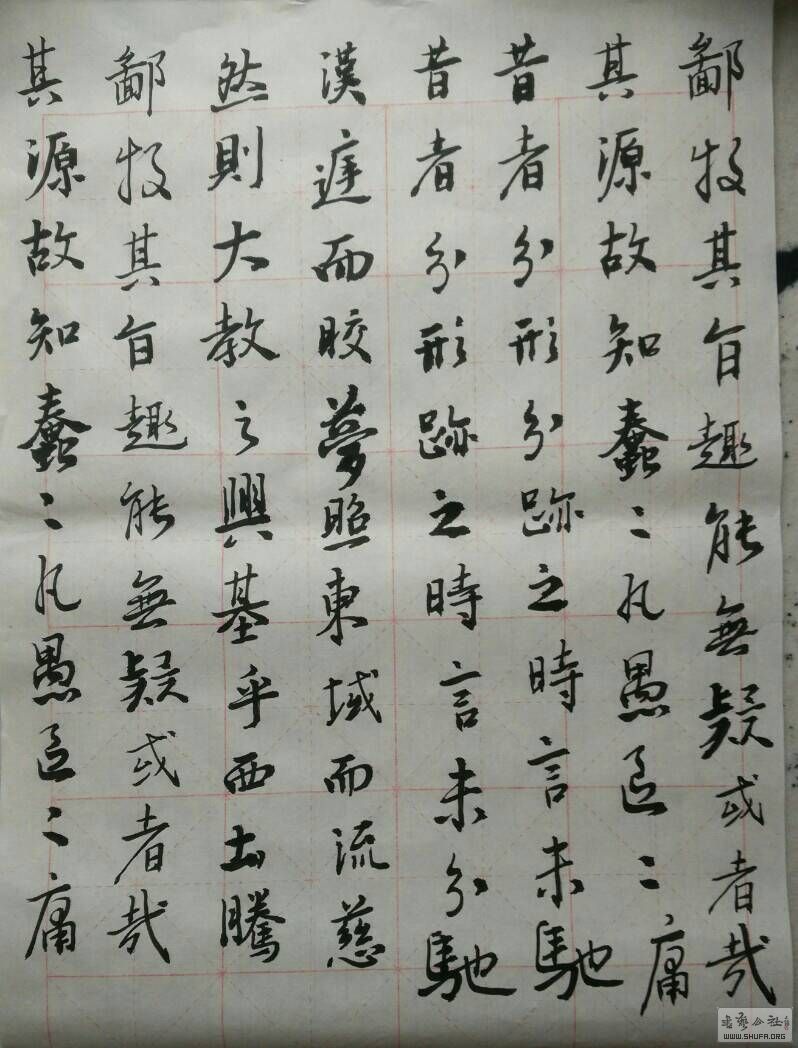 其源故知蠢〻凡愚區〻庸
鄙投其旨趣能無疑或者哉
然則大教之興基乎西土騰
漢庭而晈夢照東域而流慈
昔者分形跡之時言未分馳
昔者分形分跡之時言未馳
其源故知蠢〻凡愚區〻庸
鄙投其旨趣能無疑或者哉
书艺公社
WWW.SHUFA.ORG